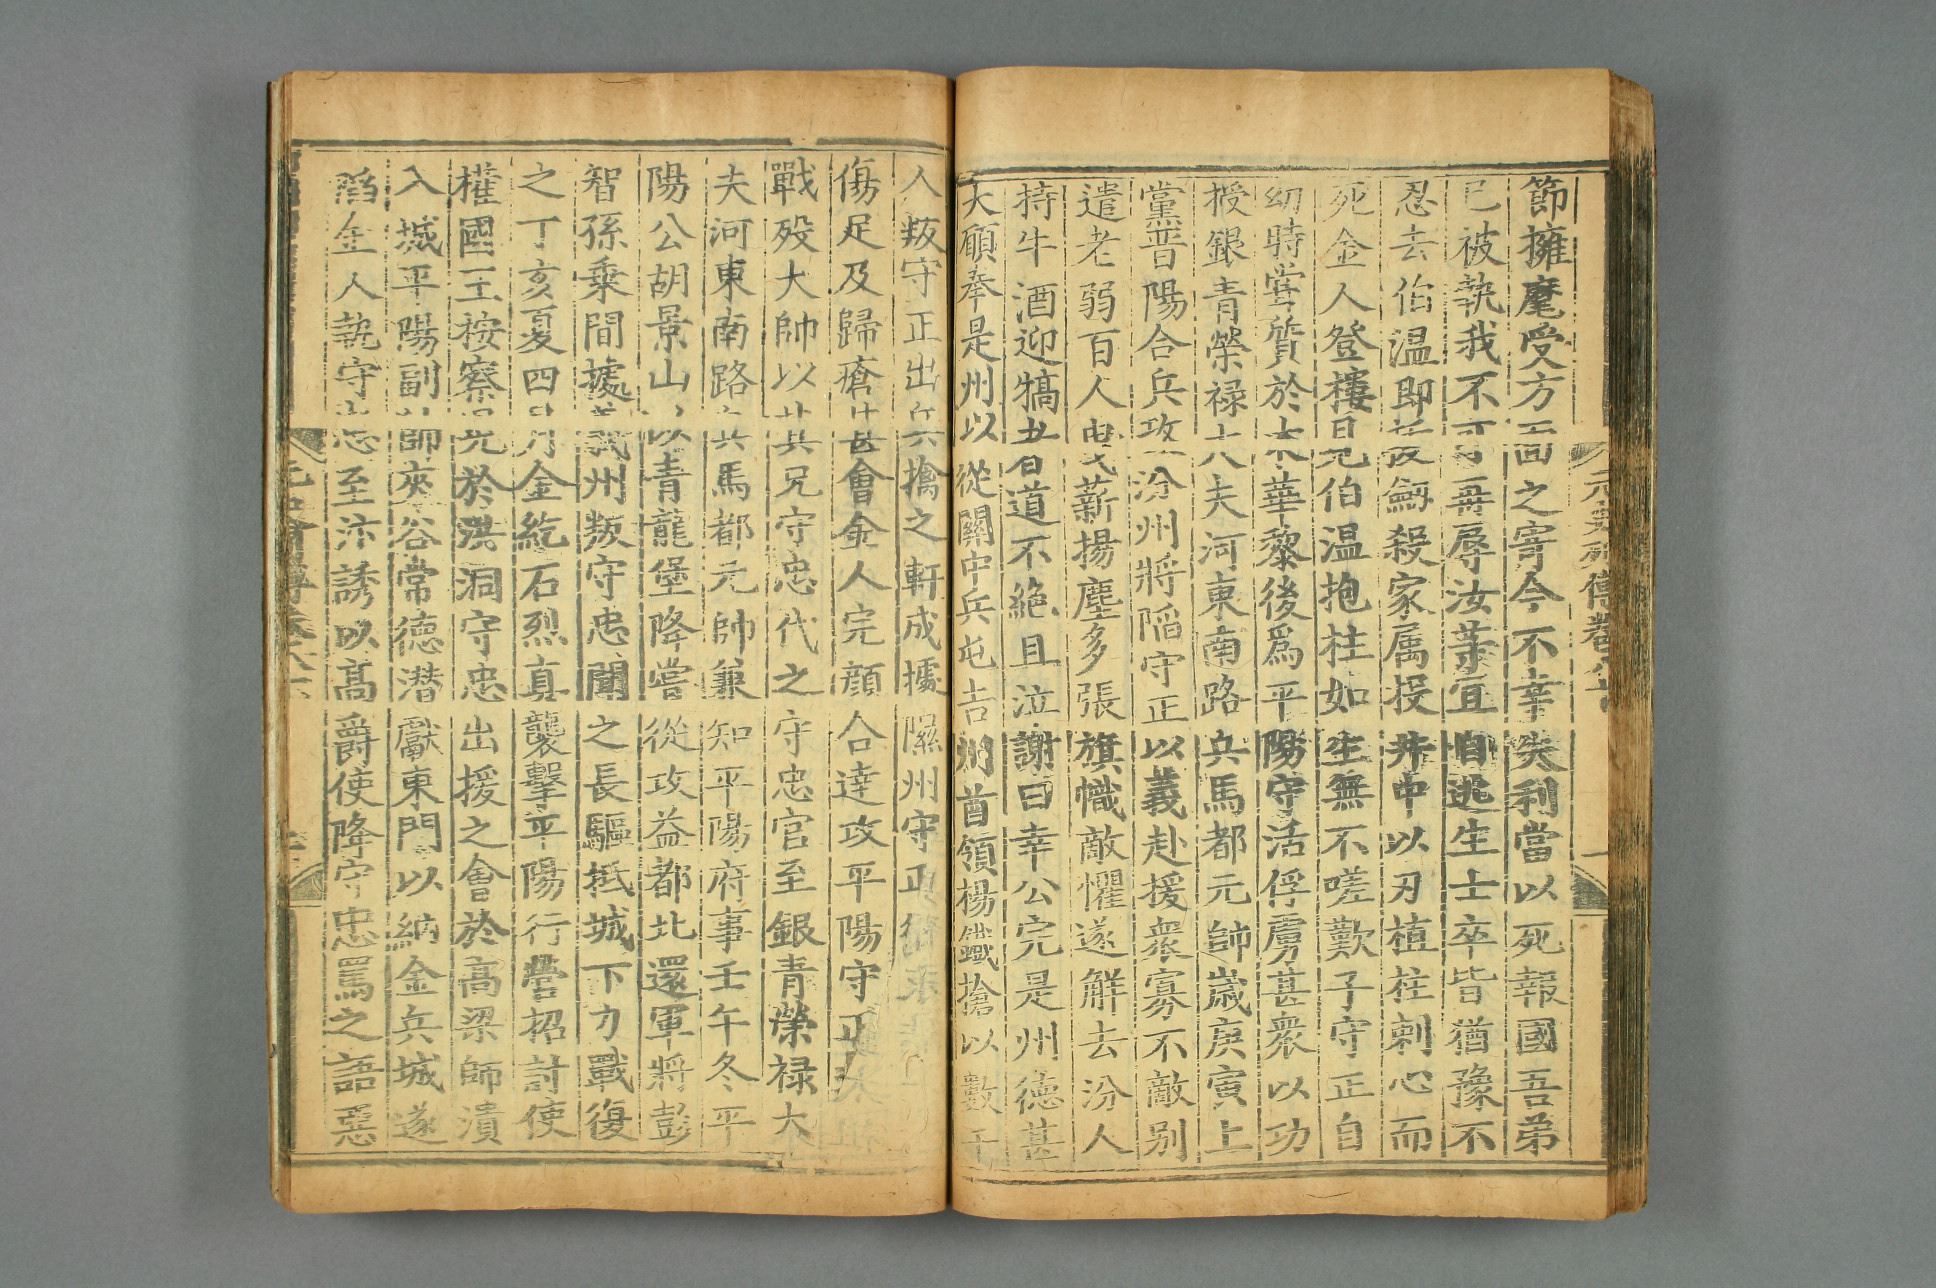 節擁麾受方面之寄今不幸失利當以死報國吾弟
已被執我不可再辱汝輩宜自逃生士卒皆猶豫不
忍去伯温即拔劒殺家属投井中以刃植柱刺心而
死金人登樓見伯温抱柱如生無不嗟歎子守正自
幼時嘗質於木華黎後爲平陽守活俘虜甚衆以功
授銀青榮禄大夫河東南路兵馬都元帥歲庚寅上
黨晋陽合兵攻汾州將陷守正以義赴援衆寡不敵别
遣老弱百人曳薪揚塵多張旗幟敵懼遂解去汾人
持牛酒迎犒者道不絶且泣謝曰幸公完是州德甚
大願奉是州以從關中兵屯吉州酋領楊鐵搶以數千
人叛守正出兵擒之軒成據隰州守正
傷足及歸瘡甚會金人完顔合達攻平陽守正
戰殁大帥以其兄守忠代之守忠官至銀青榮禄大
夫河東南路兵馬都元帥兼知平陽府事壬午冬平
陽公胡景山以青龍堡降嘗從攻益都北還軍將彭
智孫乘間據義州叛守忠聞之長驅抵城下力戰復
之丁亥夏四月金紇石烈真襲擊平陽行營招討使
權國王按察兒於洪洞守忠出援之會於高梁師潰
入城平陽副帥夾谷常德潛獻東門以納金兵城遂
陷金人執守忠至汴誘以高爵使降守忠罵之語惡